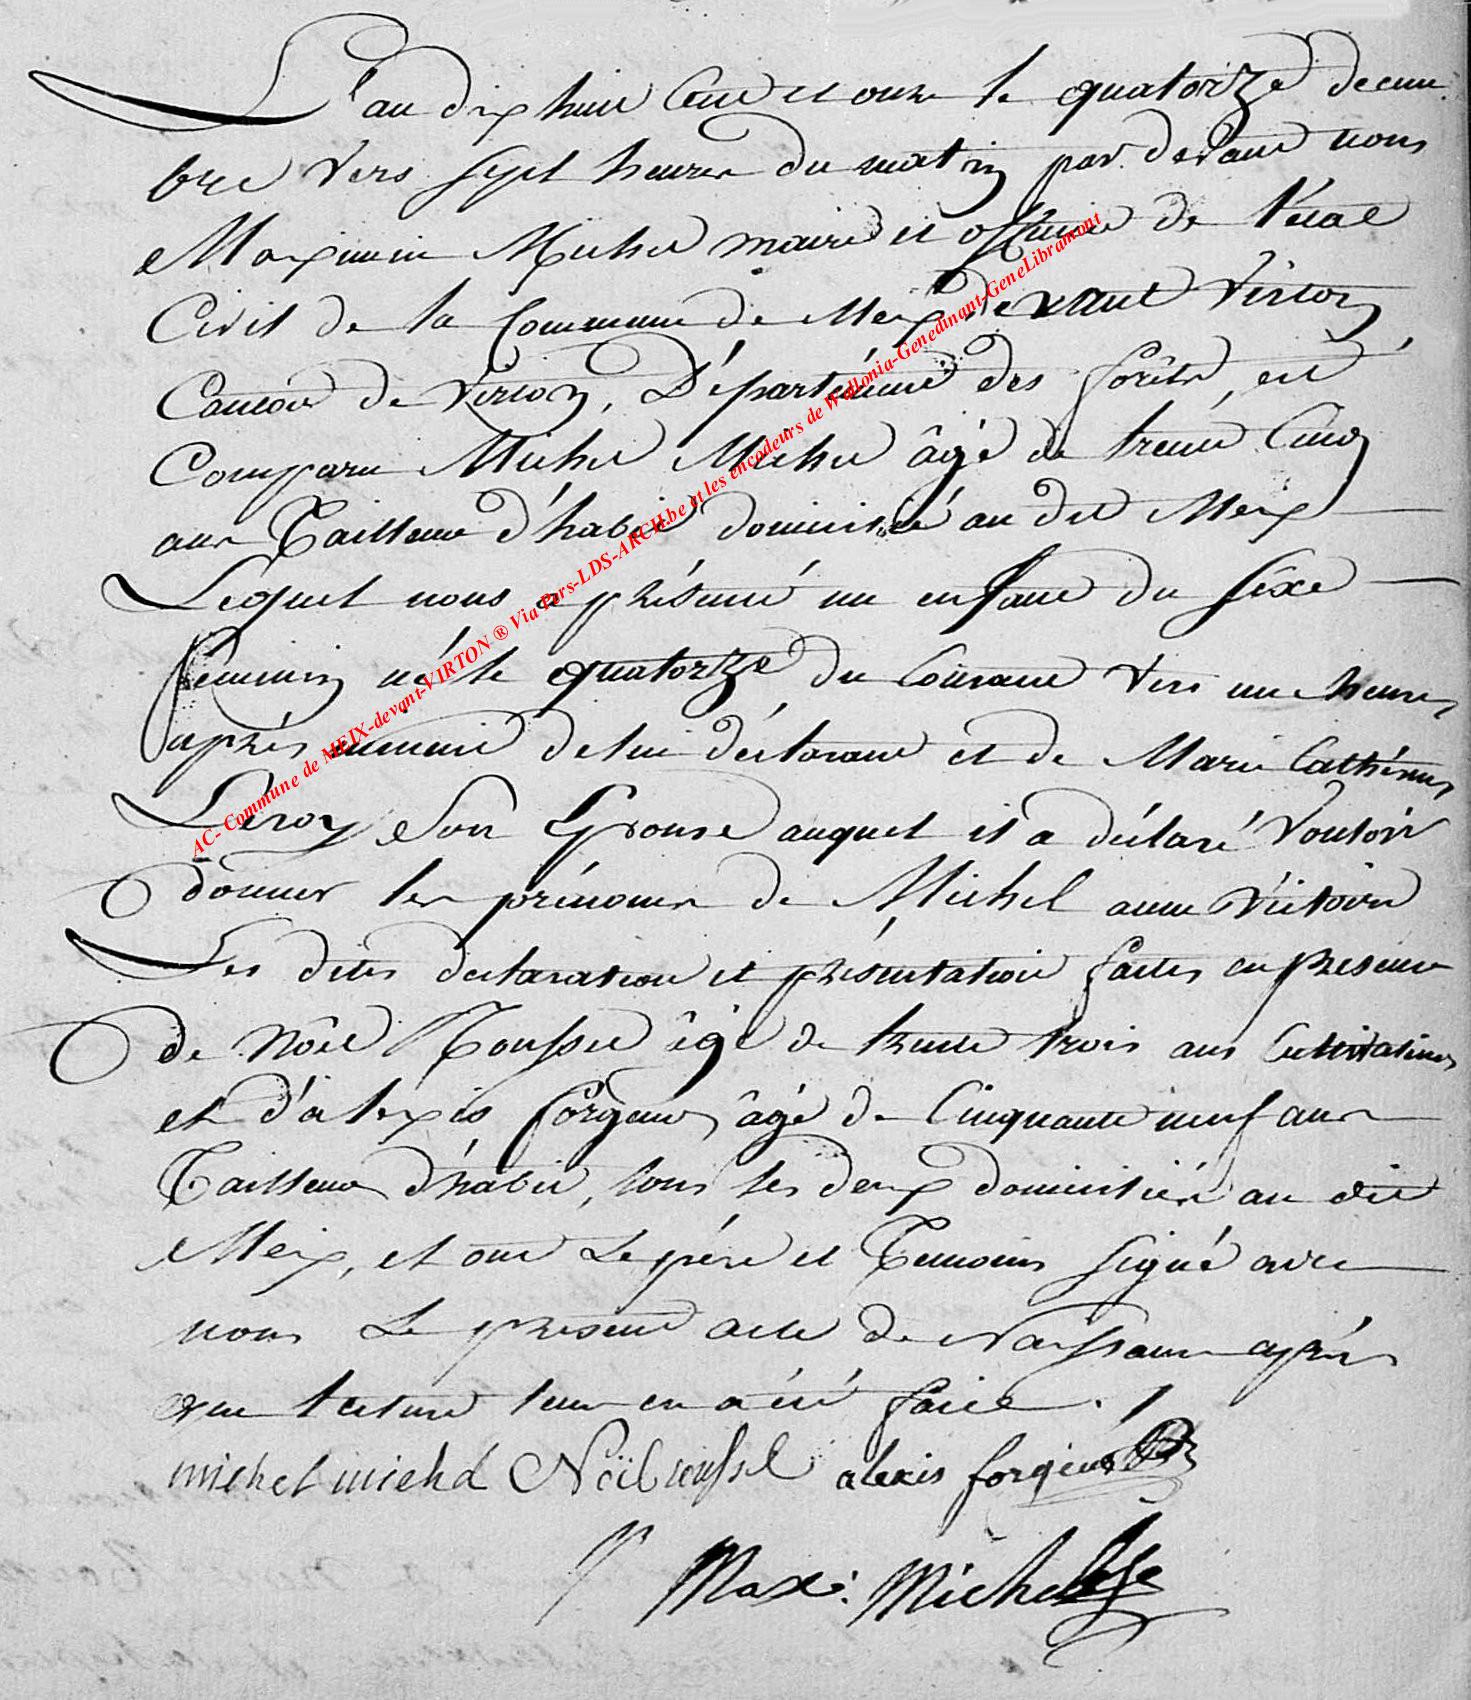 L'an dix huit Cent et onze le quatorze decem
bre vers sept heures du matin par devant nous
Maximin Michel maire et officier de l'état
Civil de la Commune de Meix devant Virton
Canton de Virton, Département des forêts, est
Comparu Michel Michel âgé de trente Cinq
ans Tailleur d'habit domicilié au dit Meix
Lequel nous a présenté un enfant du sexe
féminin né le quatorze du Courant vers une heures
après minuit de lui déclarant et de Marie Cathérine
Leroy Son Epouse auquel il a déclaré Vouloir
donner les prénoms de Michel anne Victoire
Les dites declaration et présentation faites en presence
de Nôel Rousselle âgé de trente trois ans Cultivateur
et d'alexis forgeur âgé de Cinquante neuf ans
Tailleur d'habit, tous les deux domiciliés au dit
Meix, et ont Le père et Temoins signé avec
nous Le present acte de Naissance après
que lecture leur en a été faite.
michel michel Noël roussel alexis forgeur
Max: Michel
AC- Commune de MEIX-devant-VIRTON ® Via Pers-LDS-ARCH.be et les encodeurs de Wallonia-Genedinant-GeneLibramont